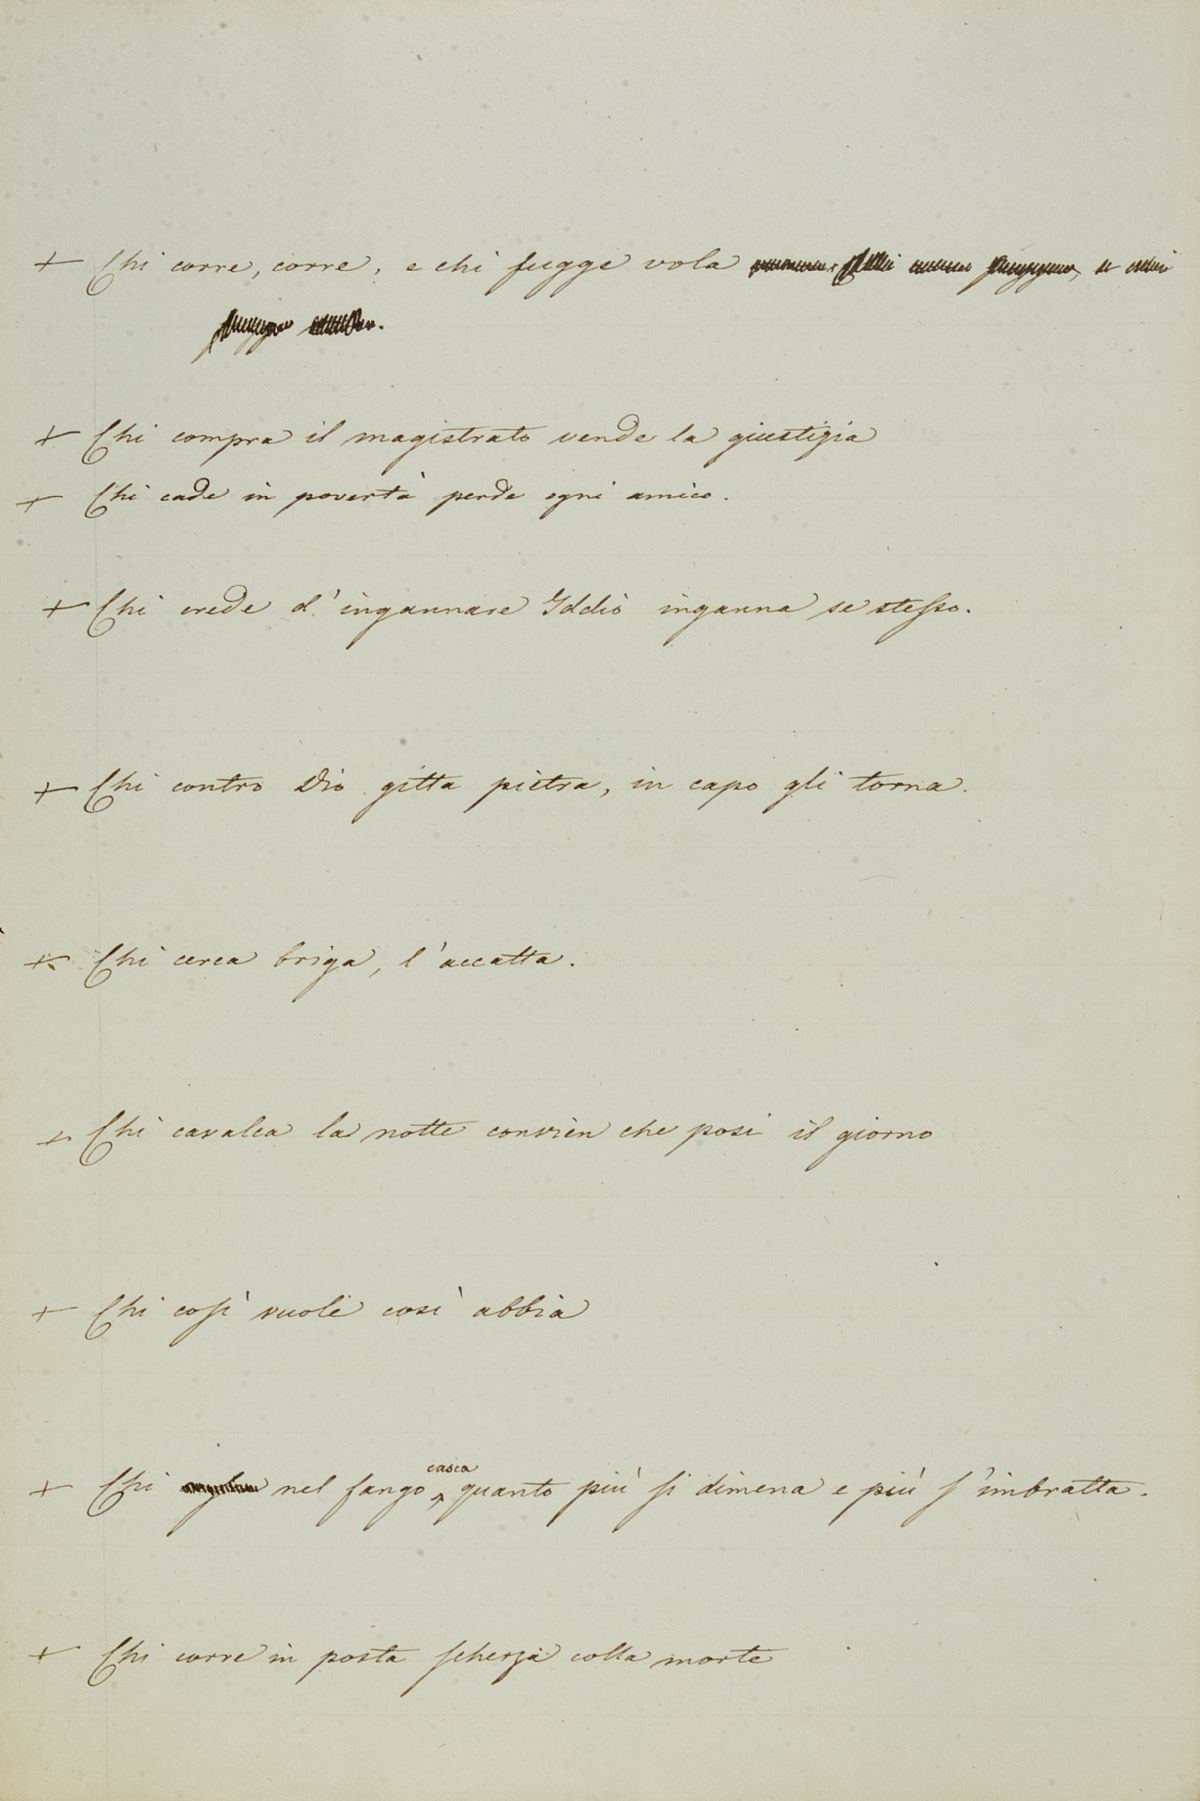 + Chi corre, corre, e chi fugge vola
+ Chi compra il magistrato vende la giustizia
+ Chi cade in povertà perde ogni amico.
+ Chi crede d'ingannare Iddio inganna se stesso.
+ Chi contro Dio gitta pietra, in capo gli torna.
+ Chi cerca briga, l'accatta.
+ Chi cavalca la notte convien che posi il giorno
+ Chi così vuole così abbia
casca
+ Chi nel fango quanto più si dimena e più s'imbratta.
+ Chi corre in posta scherza colla morte